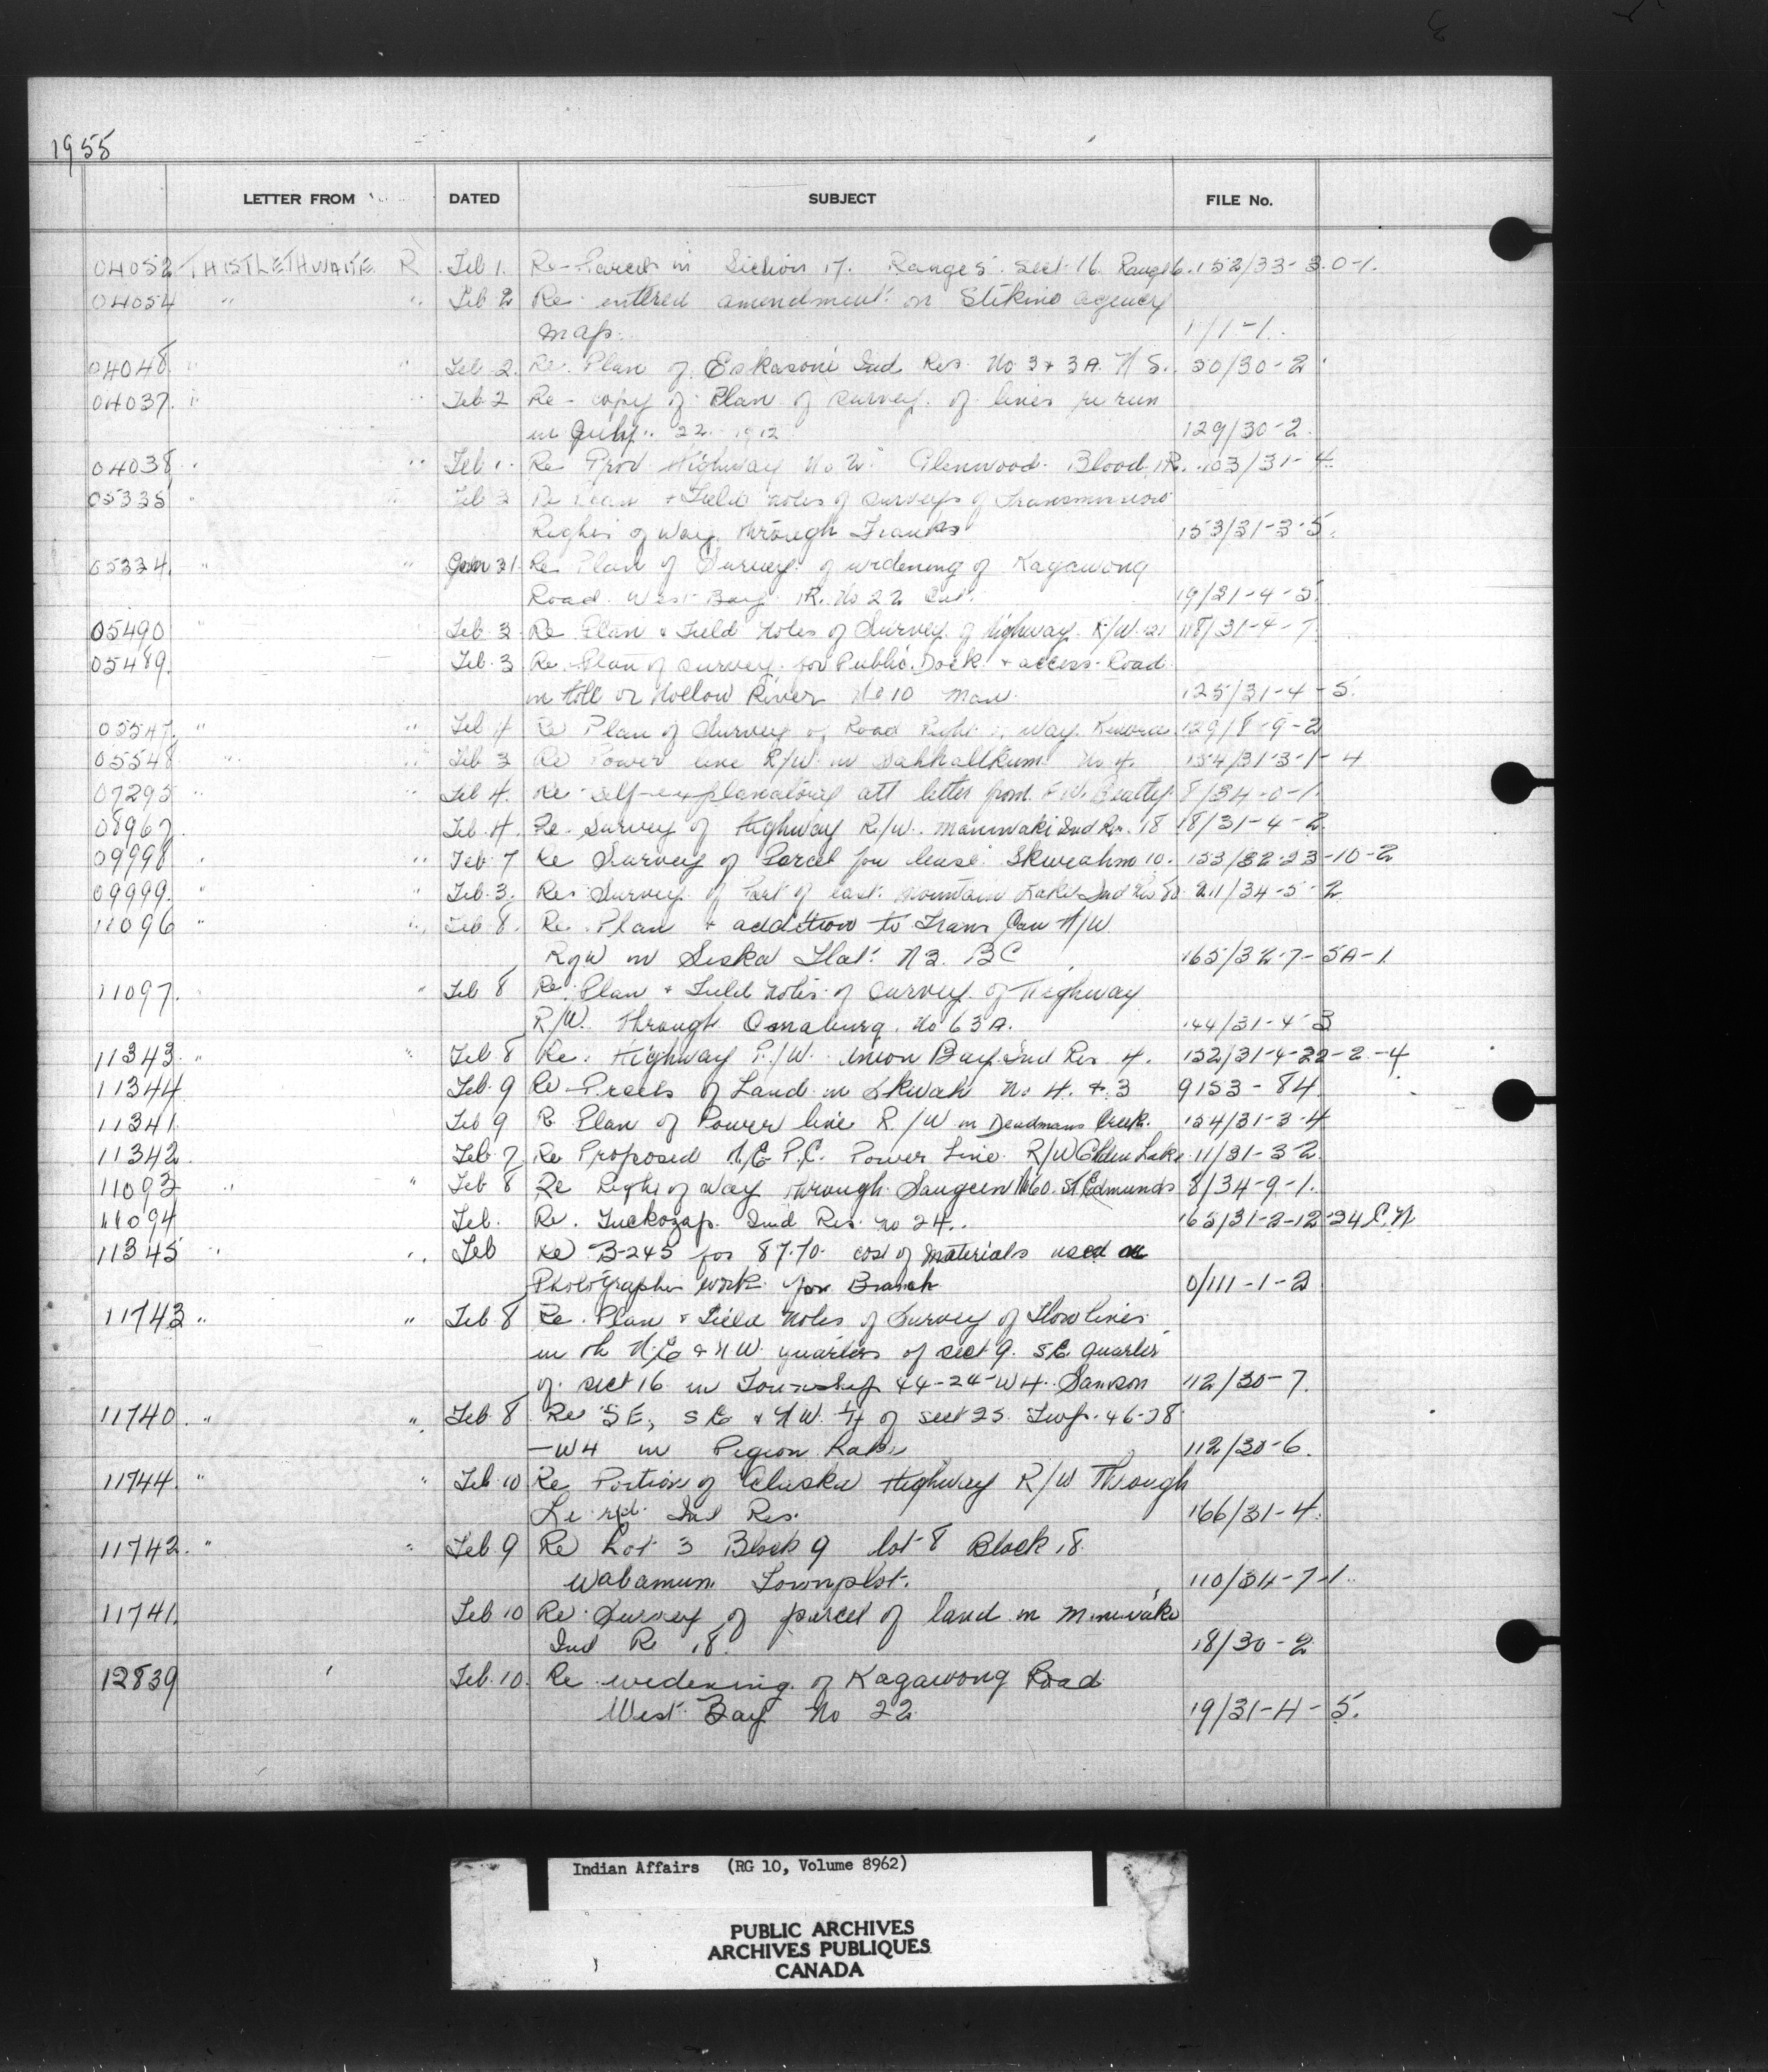 1955
LETTER FROM DATED SUBJECT FILE No.
04052 THISTLETHWAITE R. Feb 1. Re - Parcels in Section 17. Range 5. Sect. 16 Range 6. 152/33-3.0-1.
04054 " " Feb 2 Re. entered amendment on Stikine agency
map. 1/1-1.
04048 " " Feb. 2. Re. Plan of Eskasoni Ind. Res. No 3 & 3A. N S. 50/30-2
04037. " " Feb 2 Re - copy of Plan of survey of lines re run
in July 22 1912 129/30-2.
04038 " " Feb 1. Re Prov Highway No 2 Glenwood. Blood IR. 103/31-4.
05335 " " Feb 3 Re + Field notes of surveys of Transmission
Rights of Way through 153/31-3-5.
05334. " " Jan 31. Re. Plan of Survey of widening of Kagawong
Road. West Bay IR. No 22 Ont. 19/31-4-5.
05490 " Feb. 3. Re Plan & Field Notes of Survey of highway R/W 21 118/31-4-7
05489. Feb. 3 Re. Plan of survey for Public Dock & access Road
in Hole or Hollow River No 10 Man. 125/31-4-5.
05547. " " Feb 4 Re Plan of Survey of Road Right of Way Kenora 129/8-9-2
05548 " " Feb 3 Re Power line R/W in Sahhaltkum No 4. 154/31-3-1-4
07295 " " Feb 4. Re self-explanatory att letter from F.W. Beatty 8/34-0-1.
08967. " " Feb. 4. Re. Survey of Highway R/W. Maniwaki Ind Res. 18 18/31-4-2.
09998 " " Feb 7 Re Survey of Parcel for lease Skweahm 10. 153/32-23-10-2
09999. " " Feb. 3. Re. Survey of Part of last mountain Lake Ind Res 211/34-5-2
11096 " " Feb 8. Re. Plan & addition to Trans Can H/W
R of W in Siska Flat N 3. BC 165/32-7-5A-1.
11097. " " Feb 8 Re. Plan & Field Notes of survey of Highway
R/W. through Osnaburg. No 63A. 144/31-4-3
11343. " " Feb 8 Re. Highway R/W. Union Bay Ind Res 4. 152/31-4-22-2-4
11344 Feb. 9 Re - of Land in Skwah No 4. & 3 9153-84.
11341 Feb 9 Re Plan of Power line R/W in Deadmans Creek. 154/31-3-4
11342. Feb. 7 Re Proposed H.E.P.C. Power Line R/W Golden Lake 11/31-3-2.
11093 " " Feb 8 Re Right of Way through Saugeen No 60. St Edmunds 8/34-9-1.
11094 Feb. Re. Tuckozap Ind Res. no 24. 165/31-2-12-24 C.N
11345 " " Feb Re B-245 for 87.70 cost of materials used on
Photographer work for Branch 0/111-1-2
11743 " " Feb 8 Re. Plan & Field Notes of Survey of Flow lines
in th N.E. & N W. quarters of sect 9. S.E. quarter
of sect 16 in Township 44-24-W4. Samson 112/30-7.
11740 " " Feb 8 Re S E, S E & N W. 1/4 of sect 25. Twp. 46-28
-W4 in Pigeon Lake 112/30-6.
11744. " " Feb 10 Re Portion of Alaska Highway R/W Through
Ind Res. 166/31-4.
11742. " " Feb. 9 Re Lot 3 Block 9 lot 8 Block 18.
Wabamun Townplot. 110/34-7-1.
11741. Feb 10 Re. Survey of parcel of land in Maniwaki
Ind R 18. 18/30-2.
12839 Feb. 10. Re widening of Kagawong Road
West Bay No 22 19/31-4-5.
Indian Affairs (RG 10, Volume 8962)
PUBLIC ARCHIVES
ARCHIVES PUBLIQUES
CANADA